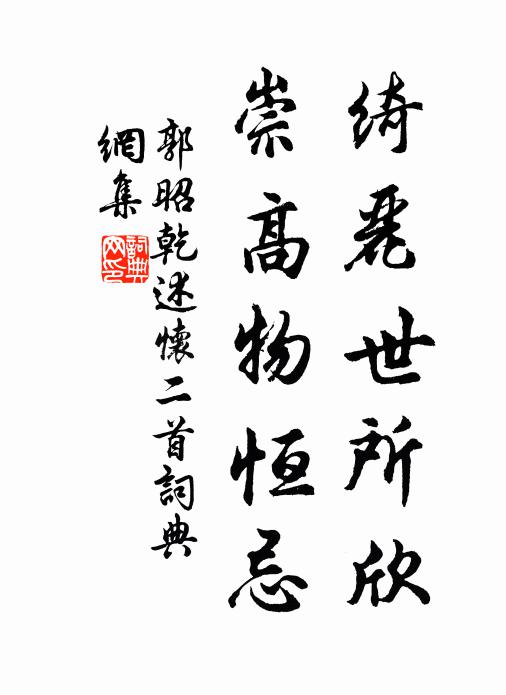 綺麗世所欣
崇高物恒忌
郭昭乾述懷二首詞典
網集
詞典網印